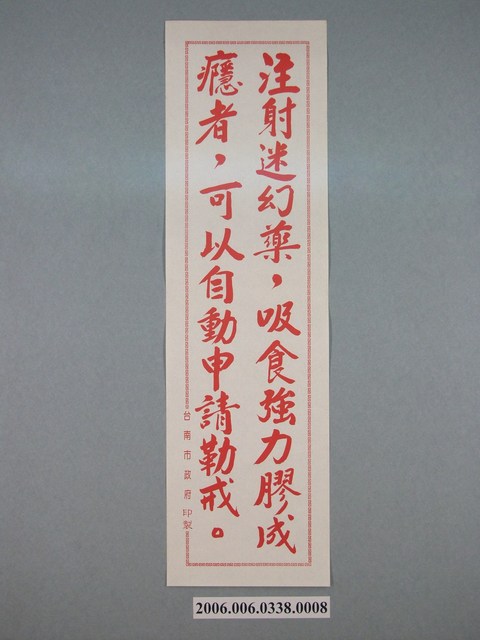 注射迷幻藥，吸食強力膠成
癮者，可以自動申請勒戒。
台南市政府印製
2006.006.0338.0008